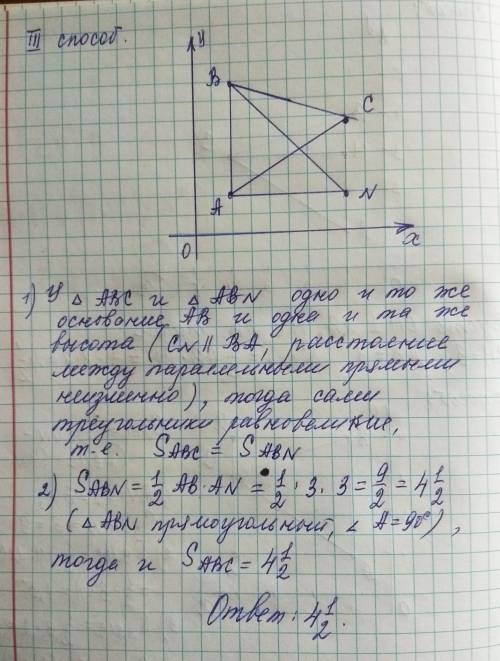 III способ.
y
B
C
A
N
0
x
1) У △ ABC и △ ABN одно и то же
основание AB и одна и та же
высота (CN || BA, расстояние
между параллельными прямыми
неизменно), тогда сами
треугольники равновеликие,
т.е. S ABC = S ABN
2) S ABN = 1/2 AB · AN = 1/2 · 3 · 3 = 9/2 = 4 1/2
(△ ABN прямоугольный, ∠ A = 90°),
тогда и S ABC = 4 1/2
Ответ: 4 1/2.